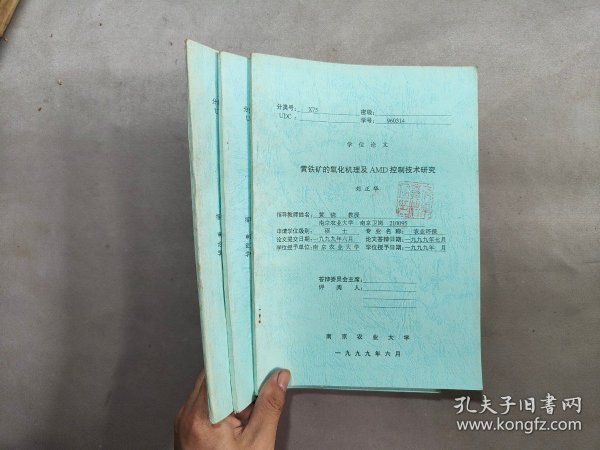 分类号: X75 密级:
UDC: 学号: 960514
学 位 论 文
黄铁矿的氧化机理及 AMD 控制技术研究
刘 正 华
指导教师姓名: 教授
南京农业大学 南京卫岗 210095
申请学位级别: 硕 士 专 业 名 称: 农业环保
论文提交日期: 一九九九年六月 论文答辩日期: 一九九九年七月
学位授予单位: 南 京 农 业 大 学 学位授予日期: 一九九九年 月
答辩委员会主席:
评 阅 人:
南 京 农 业 大 学
一 九 九 九 年 六 月
孔夫子旧书网
www.kongfz.com